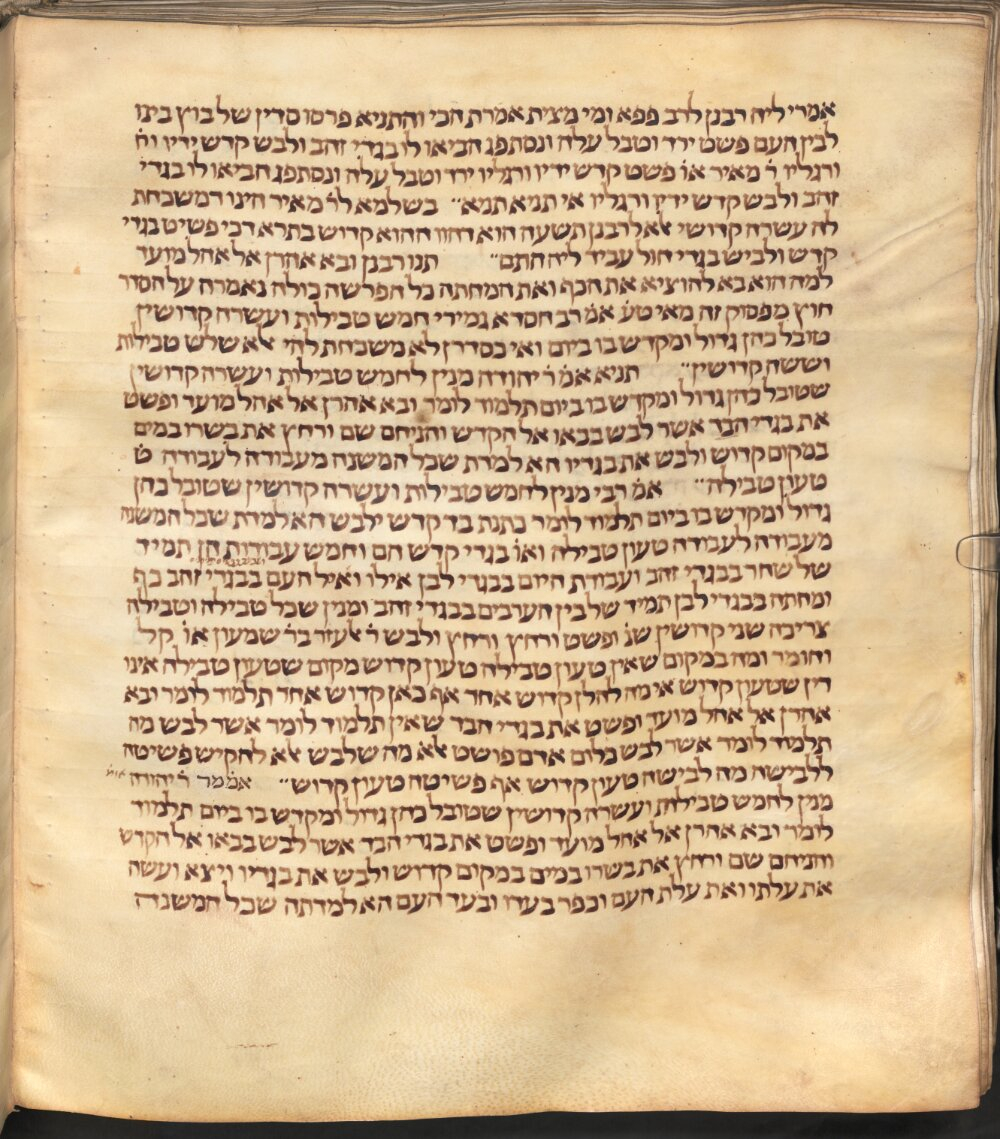 אמרי ליה רבנן לרב פפא ומי מצית אמרת הכי והתניא פרסו סדין של בוץ בינו
לבין העם פשט ירד וטבל עלה ונסתפג הביאו לו בגדי זהב ולבש קדש ידיו וח
ורגליו ר מאיר או פשט קדש ידיו ורגליו ירד וטבל עלה ונסתפג הביאו לו בגדי
זהב ולבש קדש ידיו ורגליו אי תניא תניא בשלמא לר מאיר היינו דמשכחת
לה עשרה קדושי אלא לרבנן תשעה הוא דהוו ההוא קדוש בתרא דכי פשיט בגדי
קדש ולביש בגדי חול עביד ליה התם תנו רבנן ובא אהרן אל אהל מועד
למה הוא בא להוציא את הכף ואת המחתה כל הפרשה כולה נאמרה על הסדר
חוץ מפסוק זה מאי טע אמ רב חסדא גמירי חמש טבילות ועשרה קדושין
טובל כהן גדול ומקדש בו ביום ואי כסדרן לא משכחת להי אלא שלש טבילות
וששה קדושין תניא אמ ר יהודה מנין לחמש טבילות ועשרה קדושין
שטובל כהן גדול ומקדש בו ביום תלמוד לומר ובא אהרן אל אהל מועד ופשט
את בגדי הבד אשר לבש בבאו אל הקדש והניחם שם ורחץ את בשרו במים
במקום קדוש ולבש את בגדיו הא למדת שכל המשנה מעבודה לעבודה ט
טעון טבילה אמ רבי מנין לחמש טבילות ועשרה קדושין שטובל כהן
גדול ומקדש בו ביום תלמוד לומר כתנת בד קדש ילבש הא למדת שכל המשנה
מעבודה לעבודה טעון טבילה ואו בגדי קדש הם וחמש עבודות הן תמיד
של שחר בבגדי זהב ועבודת היום בבגדי לבן אילו ואיל העם בבגדי זהב כף
ומחתה בבגדי לבן תמיד של בין הערבים בבגדי זהב ומנין שכל טבילה וטבילה
צריכה שני קדושין שנ ופשט ורחץ ורחץ ולבש ר אלעזר בר שמעון או קל
וחומר ומה במקום שאין טעון טבילה טעון קדוש מקום שטעון טבילה אינו
דין שטעון קדוש אי מה להלן קדוש אחד אף כאן קדוש אחד תלמוד לומר ובא
אהרן אל אהל מועד ופשט את בגדי הבד שאין תלמוד לומר אשר לבש מה
תלמוד לומר אשר לבש כלום אדם פושט אלא מה שלבש אלא להקיש פשיטה
ללבישה מה לבישה טעון קדוש אף פשיטה טעון קדוש אממר ר יהודה
מנין לחמש טבילות ועשרה קדושין שטובל כהן גדול ומקדש בו ביום תלמוד
לומר ובא אהרן אל אהל מועד ופשט את בגדי הבד אשר לבש בבאו אל הקדש
והניחם שם ורחץ את בשרו במים במקום קדוש ולבש את בגדיו ויצא ועשה
את עלתו ואת עלת העם וכפר בעדו ובעד העם הא למדתה שכל המשנה